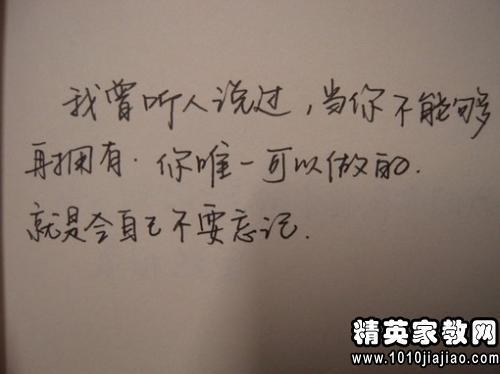 我曾听人说过,当你不能够
再拥有.你唯一可以做的.
就是令自己不要忘记.
精英家教网
www.1010jiajiao.com